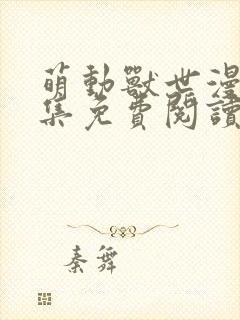 萌動獸世漫
集免費閱讀
秦舞